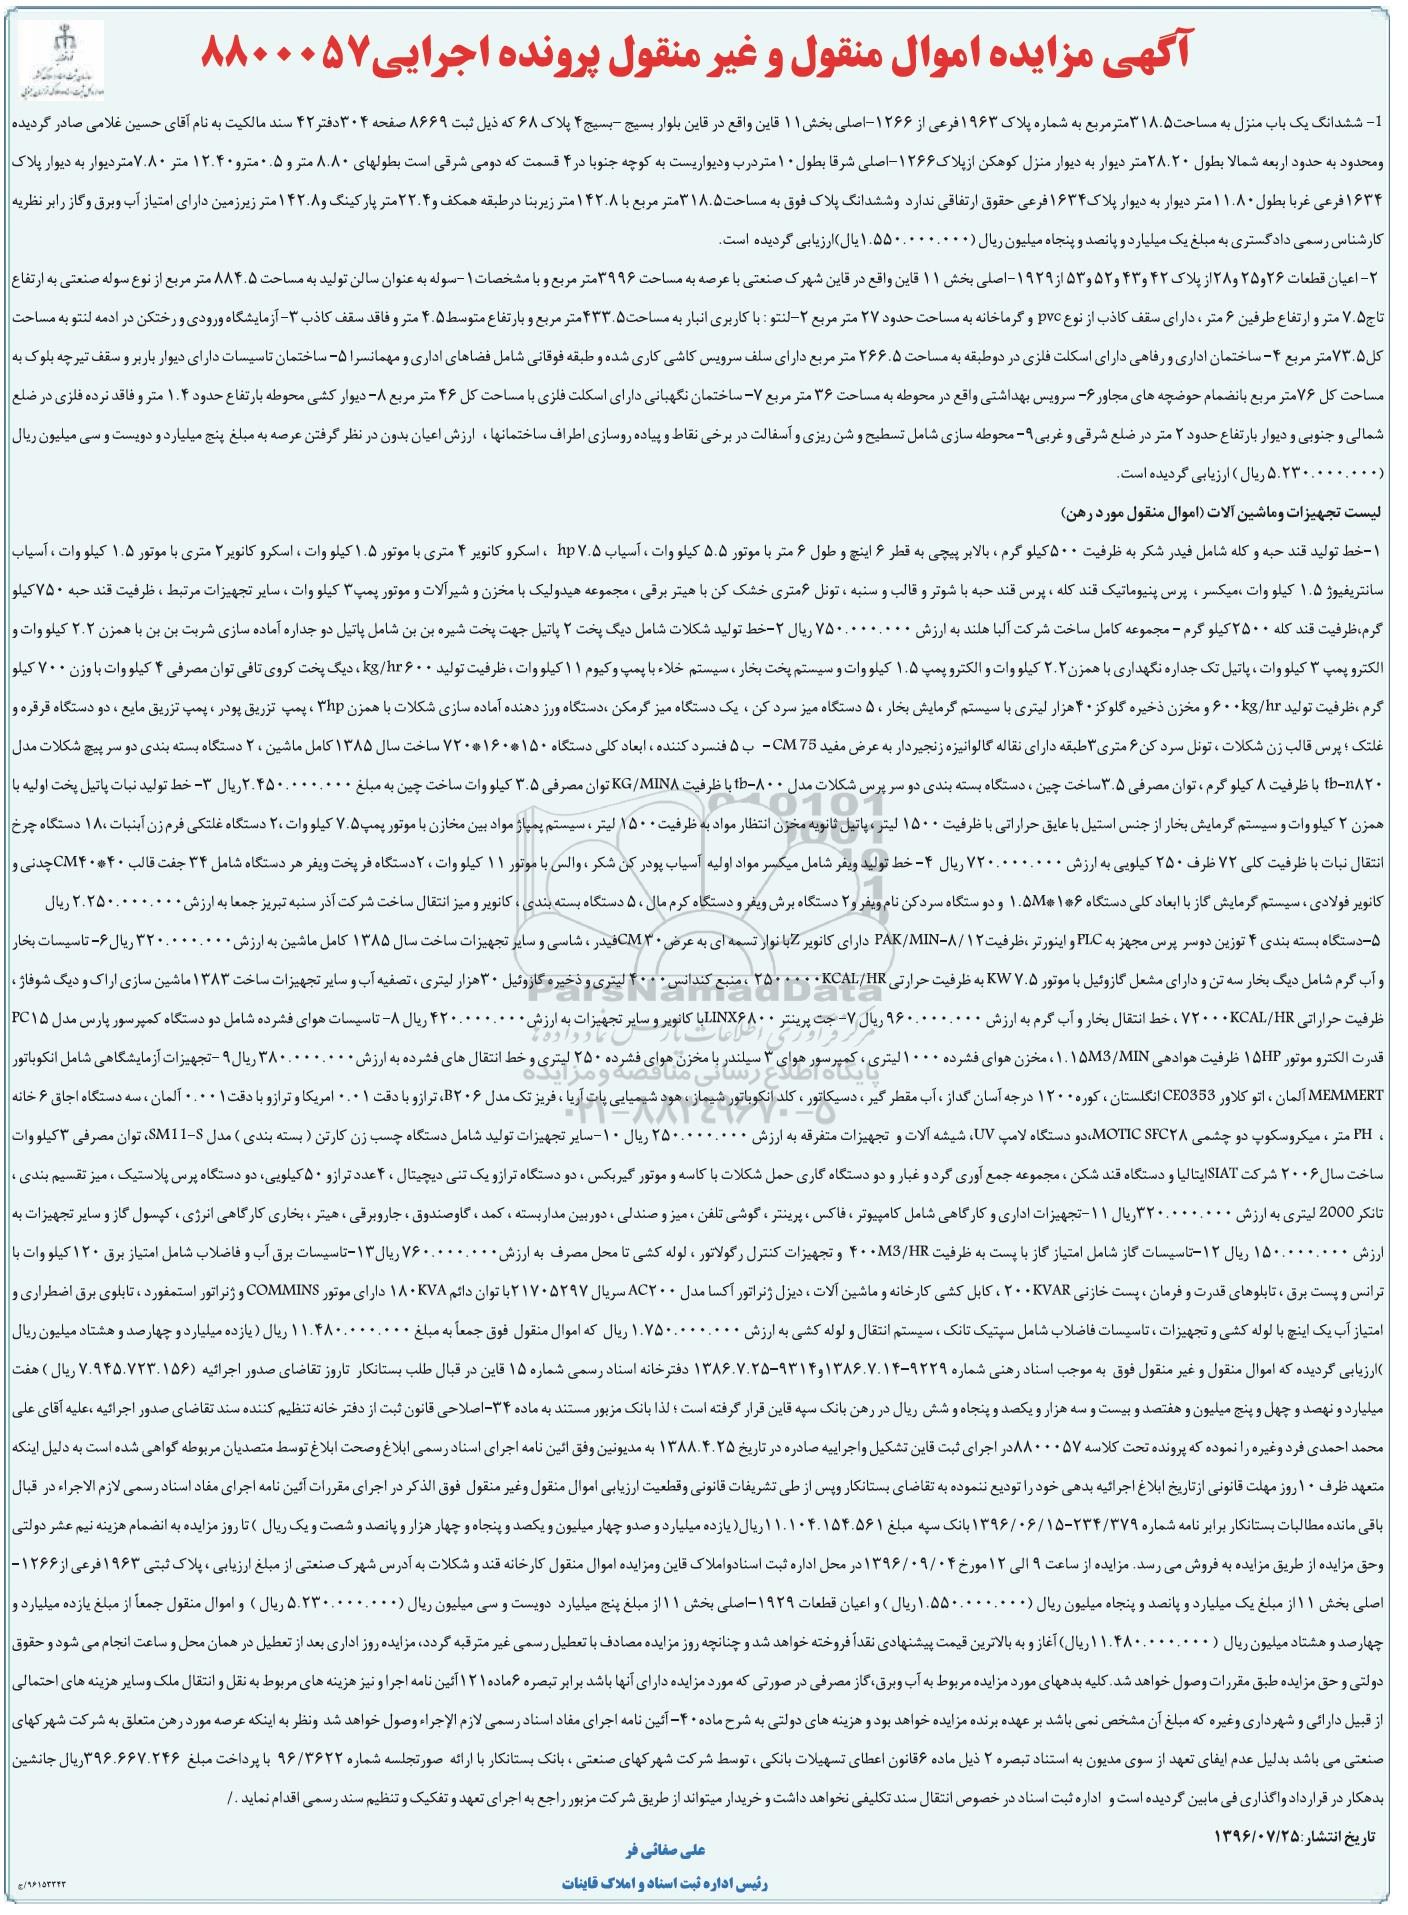 آگهی مزایده اموال منقول و غیر منقول پرونده اجرایی۸۸۰۰۰۵۷
1- ششدانگ یک باب منزل به مساحت۳۱۸.۵مترمربع به شماره پلاک ۱۹۶۳فرعی از ۱۲۶۶-اصلی بخش۱۱ قاین واقع در قاین بلوار بسیج -بسیج۴ پلاک ۶۸ که ذیل ثبت ۸۶۶۹ صفحه ۳۰۴دفتر۴۲ سند مالکیت به نام آقای حسین غلامی صادر گردیده
ومحدود به حدود اربعه شمالا بطول ۲۸.۲۰متر دیوار به دیوار منزل کوهکن ازپلاک۱۲۶۶-اصلی شرقا بطول۱۰متردرب ودیواریست به کوچه جنوبا در۴ قسمت که دومی شرقی است بطولهای ۸.۸۰ متر و ۰.۵مترو۱۲.۴۰ متر ۷.۸۰متردیوار به دیوار پلاک
۱۶۳۴فرعی غربا بطول۱۱.۸۰متر دیوار به دیوار پلاک۱۶۳۴فرعی حقوق ارتفاقی ندارد وششدانگ پلاک فوق به مساحت۳۱۸.۵متر مربع با ۱۴۲.۸متر زیربنا درطبقه همکف و۲۲.۴متر پارکینگ و۱۴۲.۸متر زیرزمین دارای امتیاز آب وبرق وگاز رابر نظریه
کارشناس رسمی دادگستری به مبلغ یک میلیارد و پانصد و پنجاه میلیون ریال (۱.۵۵۰.۰۰۰.۰۰۰یال)ارزیابی گردیده است.
۲- اعیان قطعات ۲۶و۲۵ و۲۸از پلاک ۴۲ و۴۳ و۵۲ و۵۳ از۱۹۲۹-اصلی بخش ۱۱ قاین واقع در قاین شهرک صنعتی با عرصه به مساحت ۳۹۹۶متر مربع و با مشخصات۱-سوله به عنوان سالن تولید به مساحت ۸۸۴.۵ متر مربع از نوع سوله صنعتی به ارتفاع
تاج۷.۵ متر و ارتفاع طرفین ۶ متر ، دارای سقف کاذب از نوع pvc و گرماخانه به مساحت حدود ۲۷ متر مربع ۲-لنتو : با کاربری انبار به مساحت۴۳۳.۵متر مربع و بارتفاع متوسط۴.۵ متر و فاقد سقف کاذب ۳- آزمایشگاه ورودی و رختکن در ادمه لنتو به مساحت
کل۷۳.۵متر مربع ۴- ساختمان اداری و رفاهی دارای اسکلت فلزی در دوطبقه به مساحت ۲۶۶.۵ متر مربع دارای سلف سرویس کاشی کاری شده و طبقه فوقانی شامل فضاهای اداری و مهمانسرا ۵- ساختمان تاسیسات دارای دیوار باربر و سقف تیرچه بلوک به
مساحت کل ۷۶متر مربع بانضمام حوضچه های مجاور۶- سرویس بهداشتی واقع در محوطه به مساحت ۳۶ متر مربع ۷- ساختمان نگهبانی دارای اسکلت فلزی با مساحت کل ۴۶ متر مربع ۸- دیوار کشی محوطه بارتفاع حدود ۱.۴ متر و فاقد نرده فلزی در ضلع
شمالی و جنوبی و دیوار بارتفاع حدود ۲ متر در ضلع شرقی و غربی۹- محوطه سازی شامل تسطیح و شن ریزی و آسفالت در برخی نقاط و پیاده روسازی اطراف ساختمانها ، ارزش اعیان بدون در نظر گرفتن عرصه به مبلغ پنج میلیارد و دویست و سی میلیون ریال
(۵.۲۳۰.۰۰۰.۰۰۰ ریال ) ارزیابی گردیده است.
لیست تجهیزات وماشین آلات (اموال منقول مورد رهن)
۱-خط تولید قند حبه و کله شامل فیدر شکر به ظرفیت ۵۰۰کیلو گرم ، بالابر پیچی به قطر ۶ اینچ و طول ۶ متر با موتور ۵.۵ کیلو وات ، آسیاب ۷.۵ hp ، اسکرو کانویر ۴ متری با موتور ۱.۵کیلو وات ، اسکرو کانویر۲ متری با موتور ۱.۵ کیلو وات ، آسیاب
سانتریفیوژ ۱.۵ کیلو وات ،میکسر ، پرس پنیوماتیک قند کله ، پرس قند حبه با شوتر و قالب و سنبه ، تونل ۶متری خشک کن با هیتر برقی ، مجموعه هیدولیک با مخزن و شیرآلات و موتور پمپ۳ کیلو وات ، سایر تجهیزات مرتبط ، ظرفیت قند حبه ۷۵۰کیلو
گرم،ظرفیت قند کله ۲۵۰۰کیلو گرم - مجموعه کامل ساخت شرکت آلبا هلند به ارزش ۷۵۰.۰۰۰.۰۰۰ ریال ۲-خط تولید شکلات شامل دیگ پخت ۲ پاتیل جهت پخت شیره بن بن شامل پاتیل دو جداره آماده سازی شربت بن بن با همزن ۲.۲ کیلو وات و
الکترو پمپ ۳ کیلو وات ، پاتیل تک جداره نگهداری با همزن۲.۲ کیلو وات و الکترو پمپ ۱.۵ کیلو وات و سیستم پخت بخار ، سیستم خلاء با پمپ وکیوم ۱۱ کیلو وات ، ظرفیت تولید ۶۰۰ kg/hr ، دیگ پخت کروی تافی توان مصرفی ۴ کیلو وات با وزن ۷۰۰ کیلو
گرم ،ظرفیت تولید ۶۰۰kg/hr و مخزن ذخیره گلوکز۴۰هزار لیتری با سیستم گرمایش بخار ، ۵ دستگاه میز سرد کن ، یک دستگاه میز گرمکن ،دستگاه ورز دهنده آماده سازی شکلات با همزن ۳hp ، پمپ تزریق پودر ، پمپ تزریق مایع ، دو دستگاه قرقره و
غلتک ؛ پرس قالب زن شکلات ، تونل سرد کن۶ متری۳طبقه دارای نقاله گالوانیزه زنجیردار به عرض مفید CM 75 - ب ۵ فنسرد کننده ، ابعاد کلی دستگاه ۱۵۰*۱۶۰*۷۲۰ ساخت سال ۱۳۸۵کامل ماشین ، ۲ دستگاه بسته بندی دو سر پیچ شکلات مدل
tb-n۸۲۰ با ظرفیت ۸ کیلو گرم ، توان مصرفی ۳.۵ساخت چین ، دستگاه بسته بندی دو سر پرس شکلات مدل tb-۸۰۰ با ظرفیت KG/MIN۸ توان مصرفی ۳.۵ کیلو وات ساخت چین به مبلغ ۲.۴۵۰.۰۰۰.۰۰۰ریال ۳- خط تولید نبات پاتیل پخت اولیه با
همزن ۲ کیلو وات و سیستم گرمایش بخار از جنس استیل با عایق حراراتی با ظرفیت ۱۵۰۰ لیتر ، پاتیل ثانویه مخزن انتظار مواد به ظرفیت۱۵۰۰ لیتر ، سیستم پمپاژ مواد بین مخازن با موتور پمپ۷.۵ کیلو وات ،۲ دستگاه غلتکی فرم زن آبنبات ،۱۸ دستگاه چرخ
انتقال نبات با ظرفیت کلی ۷۲ ظرف ۲۵۰ کیلویی به ارزش ۷۲۰.۰۰۰.۰۰۰ ریال ۴- خط تولید ویفر شامل میکسر مواد اولیه آسیاب پودر کن شکر ، والس با موتور ۱۱ کیلو وات ، ۲دستگاه فر پخت ویفر هر دستگاه شامل ۳۴ جفت قالب CM۴۰*۴۰چدنی و
کانویر فولادی ، سیستم گرمایش گاز با ابعاد کلی دستگاه ۶*۱*۱.۵M و دو ستگاه سردکن نام ویفر و۲ دستگاه برش ویفر و دستگاه کرم مال ، ۵ دستگاه بسته بندی ، کانویر و میز انتقال ساخت شرکت آذر سنبه تبریز جمعا به ارزش۲.۲۵۰.۰۰۰.۰۰۰ ریال
۵-دستگاه بسته بندی ۴ توزین دوسر پرس مجهز به PLC و اینورتر ،ظرفیت۸/۱۲-PAK/MIN دارای کانویر Zبا نوار تسمه ای به عرض۳۰CMفیدر ، شاسی و سایر تجهیزات ساخت سال ۱۳۸۵ کامل ماشین به ارزش۳۲۰.۰۰۰.۰۰۰ ریال۶- تاسیسات بخار
و آب گرم شامل دیگ بخار سه تن و دارای مشعل گازوئیل با موتور ۷.۵ KW به ظرفیت حرارتی ۲۵۰۰۰۰۰KCAL/HR ، منبع کندانس۴۰۰۰ لیتری و ذخیره گازوئیل ۳۰هزار لیتری ، تصفیه آب و سایر تجهیزات ساخت ۱۳۸۳ماشین سازی اراک و دیگ شوفاژ ،
ظرفیت حراراتی ۷۲۰۰۰KCAL/HR ، خط انتقال بخار و آب گرم به ارزش ۹۶۰.۰۰۰.۰۰۰ ریال ۷- جت پرینتر LINX۶۸۰۰با کانویر و سایر تجهیزات به ارزش۴۲۰.۰۰۰.۰۰۰ ریال ۸- تاسیسات هوای فشرده شامل دو دستگاه کمپرسور پارس مدل PC۱۵
قدرت الکترو موتور ۱۵HP ظرفیت هوادهی ۱.۱۵M3/MIN، مخزن هوای فشرده ۱۰۰۰ لیتری ، کمپرسور هوای ۳ سیلندر با مخزن هوای فشرده ۲۵۰ لیتری و خط انتقال های فشرده به ارزش۳۸۰.۰۰۰.۰۰۰ ریال۹ -تجهیزات آزمایشگاهی شامل انکوباتور
MEMMERT آلمان ، اتو کلاور CE0353 انگلستان ، کوره۱۲۰۰ درجه آسان گداز ، آب مقطر گیر ، دسیکاتور ، کلد انکوباتور شیماز ، هود شیمیایی پات آریا ، فریز تک مدل B۲۰۶، ترازو با دقت ۰.۰۱ امریکا و ترازو با دقت۰.۰۰۱ آلمان ، سه دستگاه اجاق ۶ خانه
، PH متر ، میکروسکوپ دو چشمی MOTIC SFC۲۸،دو دستگاه لامپ UV، شیشه آلات و تجهیزات متفرقه به ارزش ۲۵۰.۰۰۰.۰۰۰ ریال ۱۰-سایر تجهیزات تولید شامل دستگاه چسب زن کارتن ( بسته بندی ) مدل SM11-S، توان مصرفی ۳کیلو وات
ساخت سال۲۰۰۶ شرکت SIATایتالیا و دستگاه قند شکن ، مجموعه جمع آوری گرد و غبار و دو دستگاه گاری حمل شکلات با کاسه و موتور گیربکس ، دو دستگاه ترازو یک تنی دیجیتال ، ۴عدد ترازو ۵۰کیلویی، دو دستگاه پرس پلاستیک ، میز تقسیم بندی ،
تانکر 2000 لیتری به ارزش ۳۲۰.۰۰۰.۰۰۰ریال ۱۱-تجهیزات اداری و کارگاهی شامل کامپیوتر ، فاکس ، پرینتر ، گوشی تلفن ، میز و صندلی ، دوربین مداربسته ، کمد ، گاوصندوق ، جاروبرقی ، هیتر ، بخاری کارگاهی انرژی ، کپسول گاز و سایر تجهیزات به
ارزش ۱۵۰.۰۰۰.۰۰۰ ریال ۱۲-تاسیسات گاز شامل امتیاز گاز با پست به ظرفیت ۴۰۰M3/HR و تجهیزات کنترل رگولاتور ، لوله کشی تا محل مصرف به ارزش۷۶۰.۰۰۰.۰۰۰ ریال۱۳-تاسیسات برق آب و فاضلاب شامل امتیاز برق ۱۲۰کیلو وات با
ترانس و پست برق ، تابلوهای قدرت و فرمان ، پست خازنی ۲۰۰KVAR ، کابل کشی کارخانه و ماشین آلات ، دیزل ژنراتور آکسا مدل AC۲۰۰ سریال ۲۱۷۰۵۲۹۷با توان دائم ۱۸۰KVA دارای موتور COMMINS و ژنراتور استمفورد ، تابلوی برق اضطراری و
امتیاز آب یک اینچ با لوله کشی و تجهیزات ، تاسیسات فاضلاب شامل سپتیک تانک ، سیستم انتقال و لوله کشی به ارزش ۱.۷۵۰.۰۰۰.۰۰۰ ریال که اموال منقول فوق جمعاً به مبلغ ۱۱.۴۸۰.۰۰۰.۰۰۰ ریال ( یازده میلیارد و چهارصد و هشتاد میلیون ریال
)ارزیابی گردیده که اموال منقول و غیر منقول فوق به موجب اسناد رهنی شماره ۹۲۲۹-۱۳۸۶.۷.۱۴و۹۳۱۴-۱۳۸۶.۷.۲۵ دفترخانه اسناد رسمی شماره ۱۵ قاین در قبال طلب بستانکار تاروز تقاضای صدور اجرائیه (۷.۹۴۵.۷۲۳.۱۵۶ ریال ) هفت
میلیارد و نهصد و چهل و پنج میلیون و هفتصد و بیست و سه هزار و یکصد و پنجاه و شش ریال در رهن بانک سپه قاین قرار گرفته است ؛ لذا بانک مزبور مستند به ماده ۳۴-اصلاحی قانون ثبت از دفتر خانه تنظیم کننده سند تقاضای صدور اجرائیه ،علیه آقای علی
محمد احمدی فرد وغیره را نموده که پرونده تحت کلاسه ۸۸۰۰۰۵۷در اجرای ثبت قاین تشکیل واجراییه صادره در تاریخ ۱۳۸۸.۴.۲۵ به مدیونین وفق ائین نامه اجرای اسناد رسمی ابلاغ وصحت ابلاغ توسط متصدیان مربوطه گواهی شده است به دلیل اینکه
متعهد ظرف ۱۰روز مهلت قانونی ازتاریخ ابلاغ اجرائیه بدهی خود را تودیع ننموده به تقاضای بستانکار وپس از طی تشریفات قانونی وقطعیت ارزیابی اموال منقول وغیر منقول فوق الذکر در اجرای مقررات آئین نامه اجرای مفاد اسناد رسمی لازم الاجراء در قبال
باقی مانده مطالبات بستانکار برابر نامه شماره ۲۳۴/۳۷۹-۱۳۹۶/۰۶/۱۵بانک سپه مبلغ ۱۱.۱۰۴.۱۵۴.۵۶۱ریال( یازده میلیارد و صدو چهار میلیون و یکصد و پنجاه و چهار هزار و پانصد و شصت و یک ریال ) تا روز مزایده به انضمام هزینه نیم عشر دولتی
وحق مزایده از طریق مزایده به فروش می رسد. مزایده از ساعت ۹ الی ۱۲مورخ ۱۳۹۶/۰۹/۰۴در محل اداره ثبت اسنادواملاک قاین ومزایده اموال منقول کارخانه قند و شکلات به آدرس شهرک صنعتی از مبلغ ارزیابی ، پلاک ثبتی ۱۹۶۳فرعی از۱۲۶۶-
اصلی بخش ۱۱از مبلغ یک میلیارد و پانصد و پنجاه میلیون ریال (۱.۵۵۰.۰۰۰.۰۰۰ریال ) و اعیان قطعات ۱۹۲۹-اصلی بخش ۱۱از مبلغ پنج میلیارد دویست و سی میلیون ریال (۵.۲۳۰.۰۰۰.۰۰۰ ریال ) و اموال منقول جمعاً از مبلغ یازده میلیارد و
چهارصد و هشتاد میلیون ریال ( ۱۱.۴۸۰.۰۰۰.۰۰۰ریال) آغاز و به بالاترین قیمت پیشنهادی نقداً فروخته خواهد شد و چنانچه روز مزایده مصادف با تعطیل رسمی غیر مترقبه گردد، مزایده روز اداری بعد از تعطیل در همان محل و ساعت انجام می شود و حقوق
دولتی و حق مزایده طبق مقررات وصول خواهد شد.کلیه بدهیهای مورد مزایده مربوط به آب وبرق،گاز مصرفی در صورتی که مورد مزایده دارای آنها باشد برابر تبصره ۶ماده۱۲۱آئین نامه اجرا و نیز هزینه های مربوط به نقل و انتقال ملک وسایر هزینه های احتمالی
از قبیل دارائی و شهرداری وغیره که مبلغ آن مشخص نمی باشد بر عهده برنده مزایده خواهد بود و هزینه های دولتی به شرح ماده۴۰- آئین نامه اجرای مفاد اسناد رسمی لازم الإجراء وصول خواهد شد ونظر به اینکه عرصه مورد رهن متعلق به شرکت شهرکهای
صنعتی می باشد بدلیل عدم ایفای تعهد از سوی مدیون به استناد تبصره ۲ ذیل ماده ۶قانون اعطای تسهیلات بانکی ، توسط شرکت شهرکهای صنعتی ، بانک بستانکار با ارائه صورتجلسه شماره ۹۶/۳۶۲۲ با پرداخت مبلغ ۳۹۶.۶۶۷.۲۴۶ریال جانشین
بدهکار در قرارداد واگذاری فی مابین گردیده است و اداره ثبت اسناد در خصوص انتقال سند تکلیفی نخواهد داشت و خریدار میتواند از طریق شرکت مزبور راجع به اجرای تعهد و تفکیک و تنظیم سند رسمی اقدام نماید ./
تاریخ انتشار:۱۳۹۶/۰۷/۲۵
علی صفائی فر
رئیس اداره ثبت اسناد و املاک قاینات
۹۶۱۵۳۳۴۳/ج
ParsNamadData
مرکز فرآوری اطلاعات پارس نماد داده ها
پایگاه اطلاع رسانی مناقصه و مزایده
۰۲۱-۸۸۳۴۹۶۷۰-۵